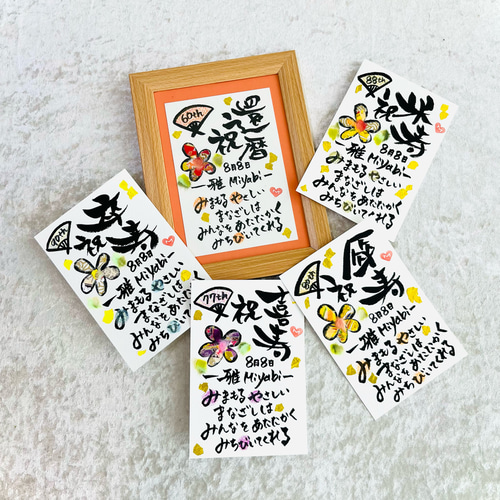 60th
還暦
祝
8月8日
一雅 Miyabi一
みまもる やさしい
まなざしは
みんなを あたたかく
みちびいてくれる
88th
米寿
祝
8月8日
一雅 Miyabi一
みまもる やさしい
まなざしは
みんなを あたたかく
みちびいてくれる
90th
卒寿
祝
8月8日
一雅 Miyabi一
みまもる やさしい
まなざしは
みんなを あたたかく
みちびいてくれる
77th
喜寿
祝
8月8日
一雅 Miyabi一
みまもる やさしい
まなざしは
みんなを あたたかく
みちびいてくれる
80th
傘寿
祝
8月8日
一雅 Miyabi一
みまもる やさしい
まなざしは
みんなを あたたかく
みちびいてくれる